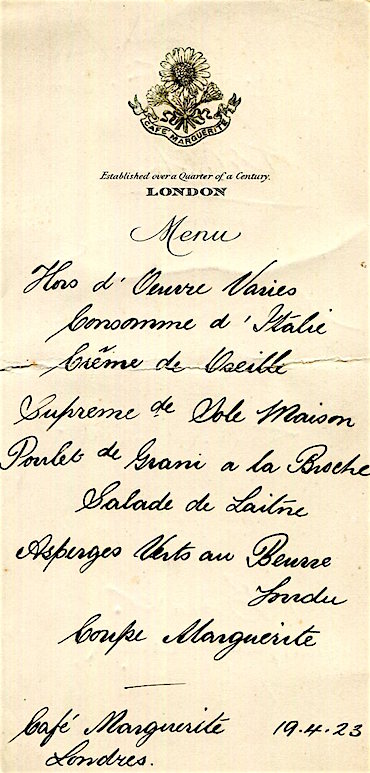 CAFÉ MARGUERITE
Established over a Quarter of a Century.
LONDON
Menu
Hors d'Oeuvre Varies
Consomme d'Italie
Crême de Oseille
Supreme de Sole Maison
Poulet de Grani a la Broche
Salade de Laitue
Asperges Verts au Beurre
Fondu
Coupe Marguerite
Café Marguerite 19.4.23
Londres.